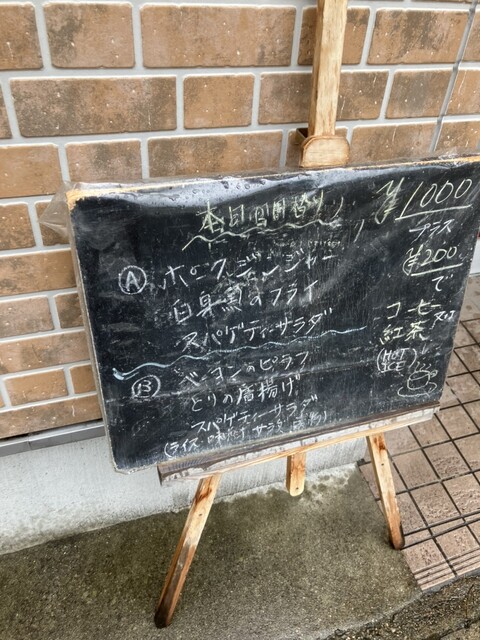 本日日替り
Ⓐ ポークジンジャー
白身魚のフライ
スパゲティーサラダ
Ⓑ ベーコンのピラフ
とりの唐揚げ
スパゲティーサラダ
(ライス サラダ
¥1000
プラス
¥200
で
コーヒー
紅茶
(HOT
ICE)